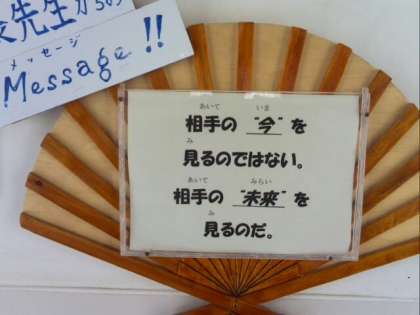 先生から
メッセージ
Message!!
あいて いま
相手の "今" を
み
見るのではない。
あいて みらい
相手の "未来" を
み
見るのだ。